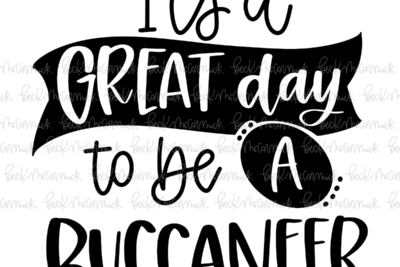 It's a
GREAT day
to be A
BUCCANEER